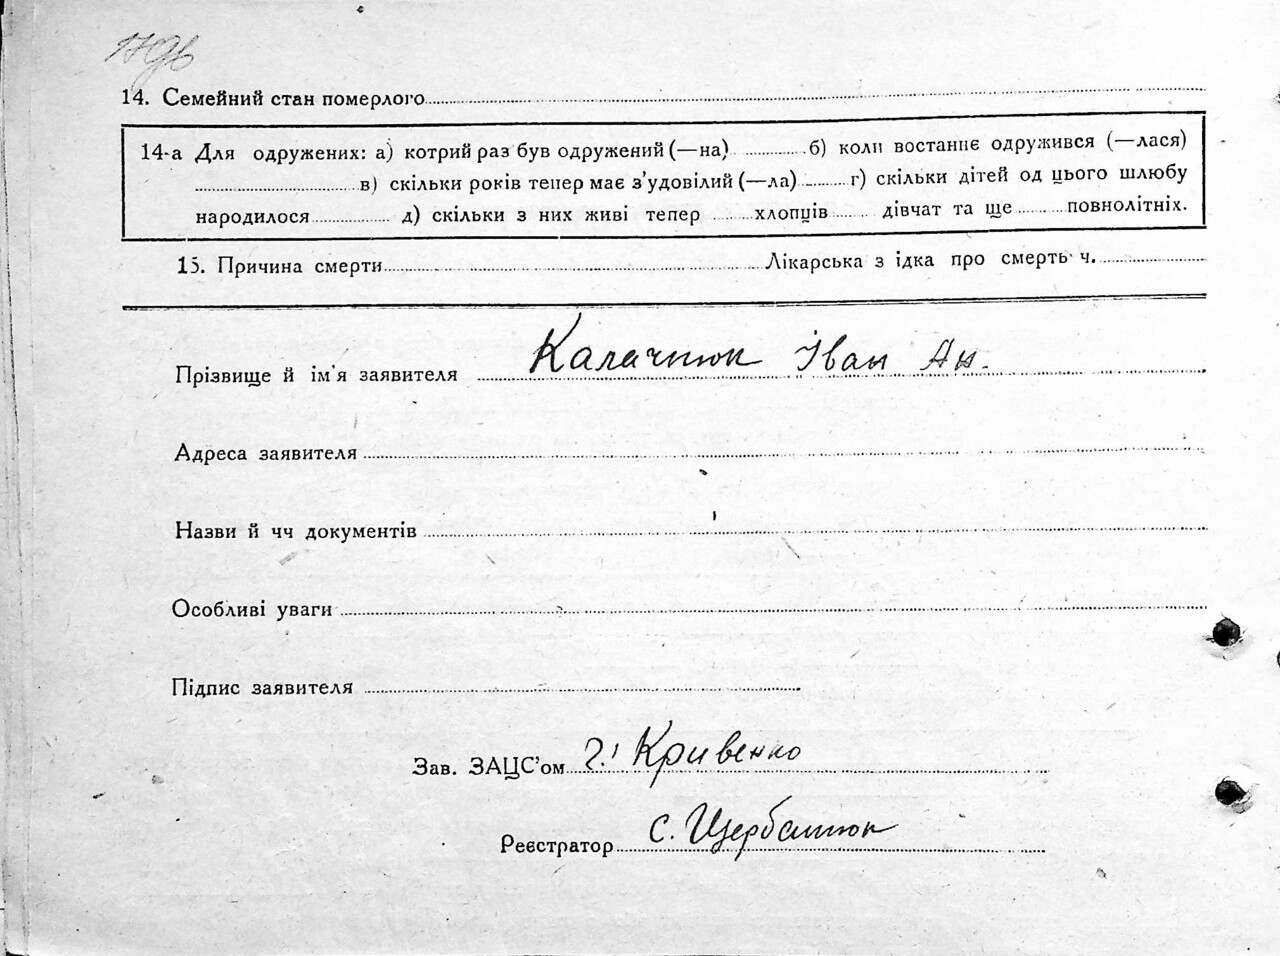 179в
14. Семейний стан померлого
14-а Для одружених: а) котрий раз був одружений (—на) б) коли востаннє одружився (—лася)
в) скільки років тепер має з'удовілий (—ла) г) скільки дітей од цього шлюбу
народилося д) скільки з них живі тепер хлопців дівчат та ще повнолітніх.
15. Причина смерти Лікарська з ідка про смерть ч.
Прізвище й ім'я заявителя Калачнюк Іван Ан.
Адреса заявителя
Назви й чч документів
Особливі уваги
Підпис заявителя
Зав. ЗАЦС'ом Кривенко
Реєстратор С. Щербатюк